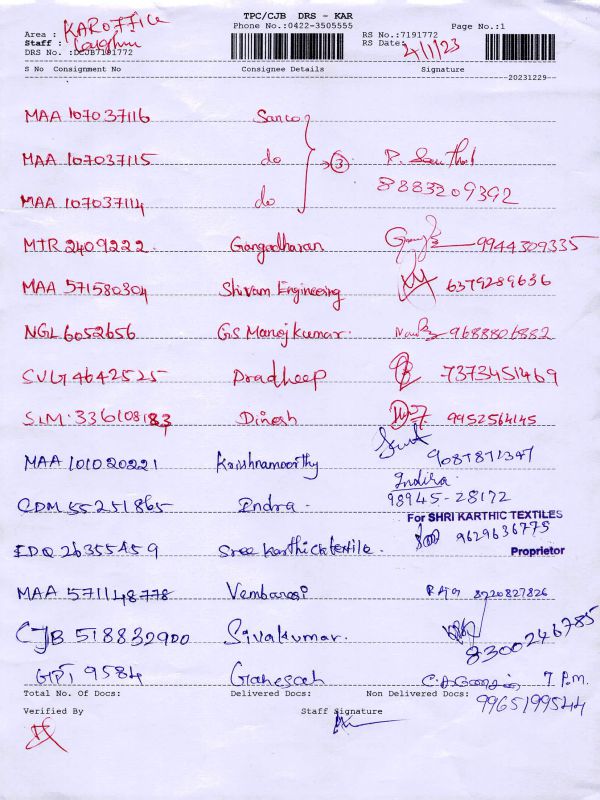 TPC/CJB DRS - KAR
Phone No.:0422-3505555 Page No.:1
Area : KAROFFICE RS No.:7191772
Staff : RS Date: 4/1/23
DRS No. :DCJB7191772
S No Consignment No Consignee Details Signature
20231229
MAA 107037116 Sanco
MAA 107037115 do 3 P. Santhosh
MAA 107037114 do 8883209392
MTR 2409222 Gangadharan 9944309335
MAA 571580304 Shivam Engineering 6379289636
NGL 6052656 GS Manojkumar. 9688806882
SVLG 4642525 Pradheep 7373451469
SLM. 336108183 Dinesh 9952564145
MAA 101020221 Krishnamoorthy 9087871347
Indira
CDM 55251865 Indra 98945-28172
For SHRI KARTHIC TEXTILES
EDQ 26355459 Sree Karthick textile. 9629636775
Proprietor
MAA 571148778 Vembarasi Raja 8220827826
CJB 518832900 Sivakumar. 8300246785
GPT 9584 Ganesh 7 P.m.
Total No. Of Docs: Delivered Docs: Non Delivered Docs: 9965199544
Verified By Staff Signature